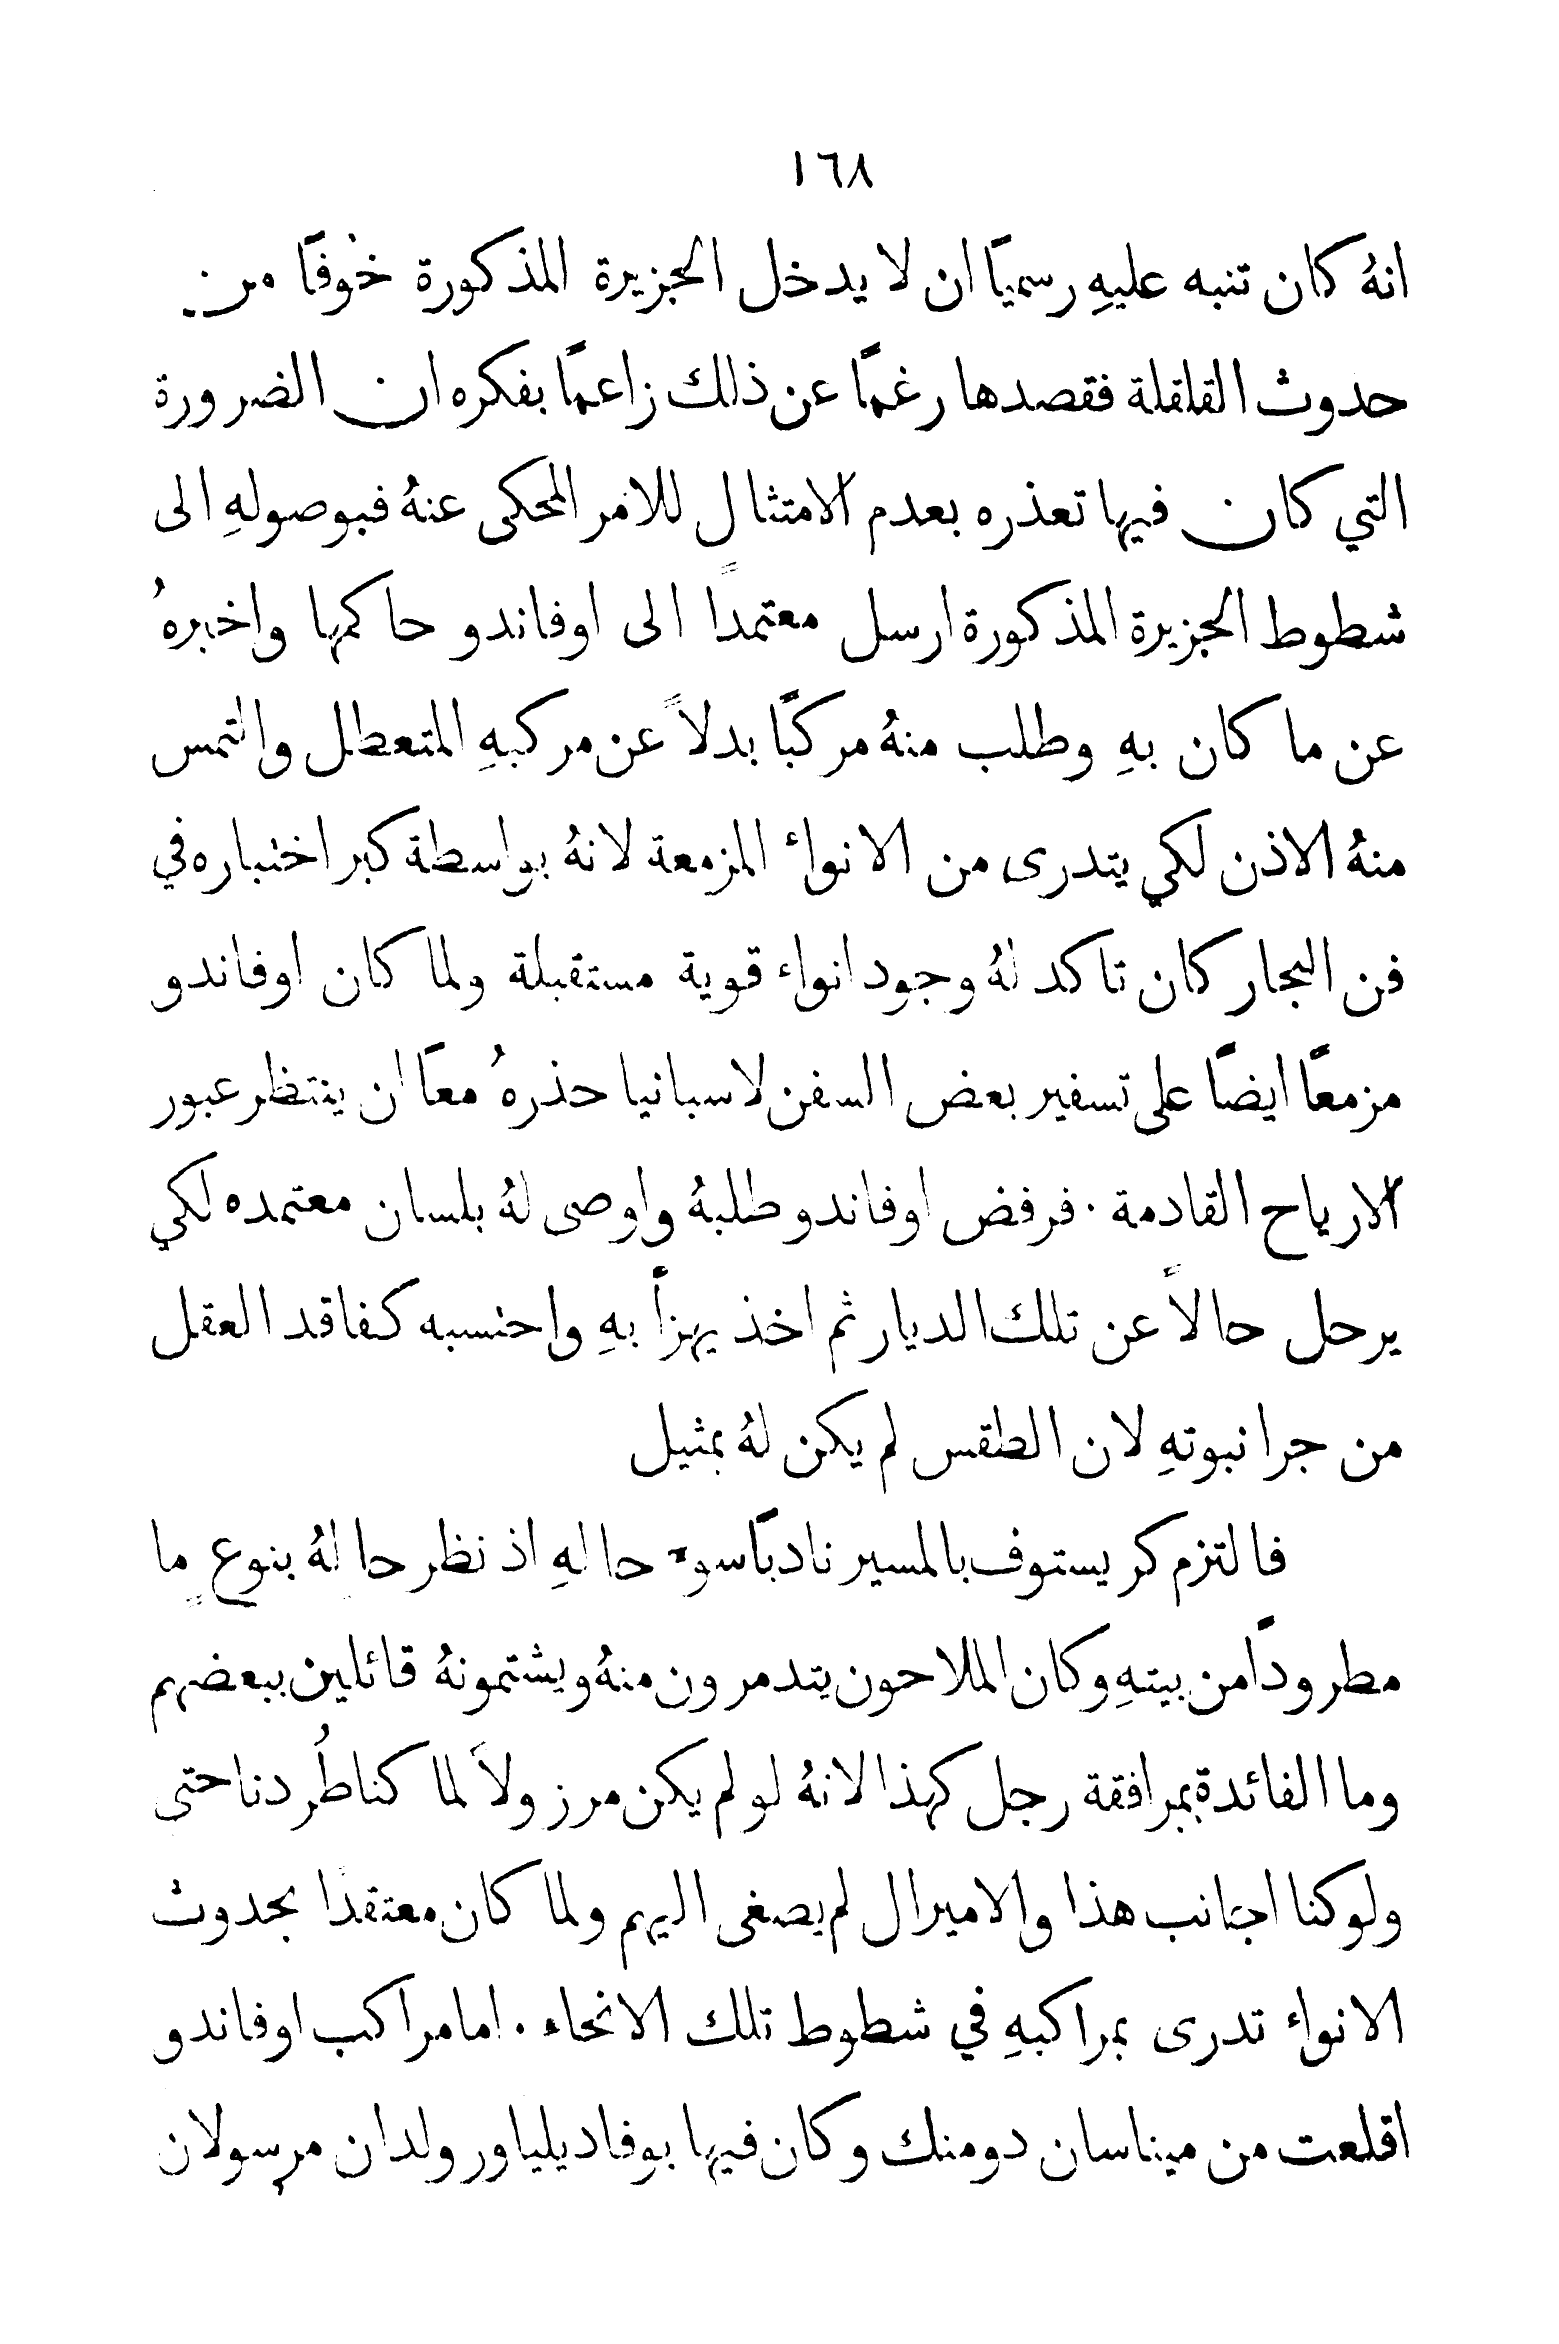 ١٦٨
انهُ كان تنبه عليهِ رسميًا ان لا يدخل الجزيرة المذكورة خوفًا من
حدوث القلقلة فقصدها رغمًا عن ذلك زاعمًا بفكره ان الضرورة
التي كان فيها تعذره بعدم الامتثال للامر المحكى عنهُ فبوصولهِ الى
شطوط الجزيرة المذكورة ارسل معتمدًا الى اوفاندو حاكمها واخبرهُ
عن ما كان بهِ وطلب منهُ مركبًا بدلاً عن مركبهِ المتعطل والتمس
منهُ الاذن لكي يتدرى من الانواء المزمعة لانهُ بواسطة كبر اختباره في
فن البحار كان تاكد لهُ وجود انواء قوية مستقبلة ولما كان اوفاندو
مزمعًا ايضًا على تسفير بعض السفن لاسبانيا حذرهُ معًا ان ينتظر عبور
الارياح القادمة . فرفض اوفاندو طلبهُ واوصى لهُ بلسان معتمده لكي
يرحل حالاً عن تلك الديار ثم اخذ يهزأ بهِ واحتسبه كفاقد العقل
من جرا نبوتهِ لان الطقس لم يكن لهُ بمثيل
فالتزم كريستوف بالمسير نادبًا سوء حالهِ اذ نظر حالهُ بنوعٍ ما
مطرودًا من بيتهِ وكان الملاحون يتدمرون منهُ ويشتمونهُ قائلين ببعضهم
وما الفائدة بمرافقة رجل كهذا لانهُ لو لم يكن مرزولاً لما كنا طُردنا حتى
ولو كنا اجانب هذا والاميرال لم يصغى اليهم ولما كان معتقدًا بحدوث
الانواء تدرى بمراكبهِ في شطوط تلك الانحاء . اما مراكب اوفاندو
اقلعت من مينا سان دومنك وكان فيها بوفاديليا ورولدان مرسولان